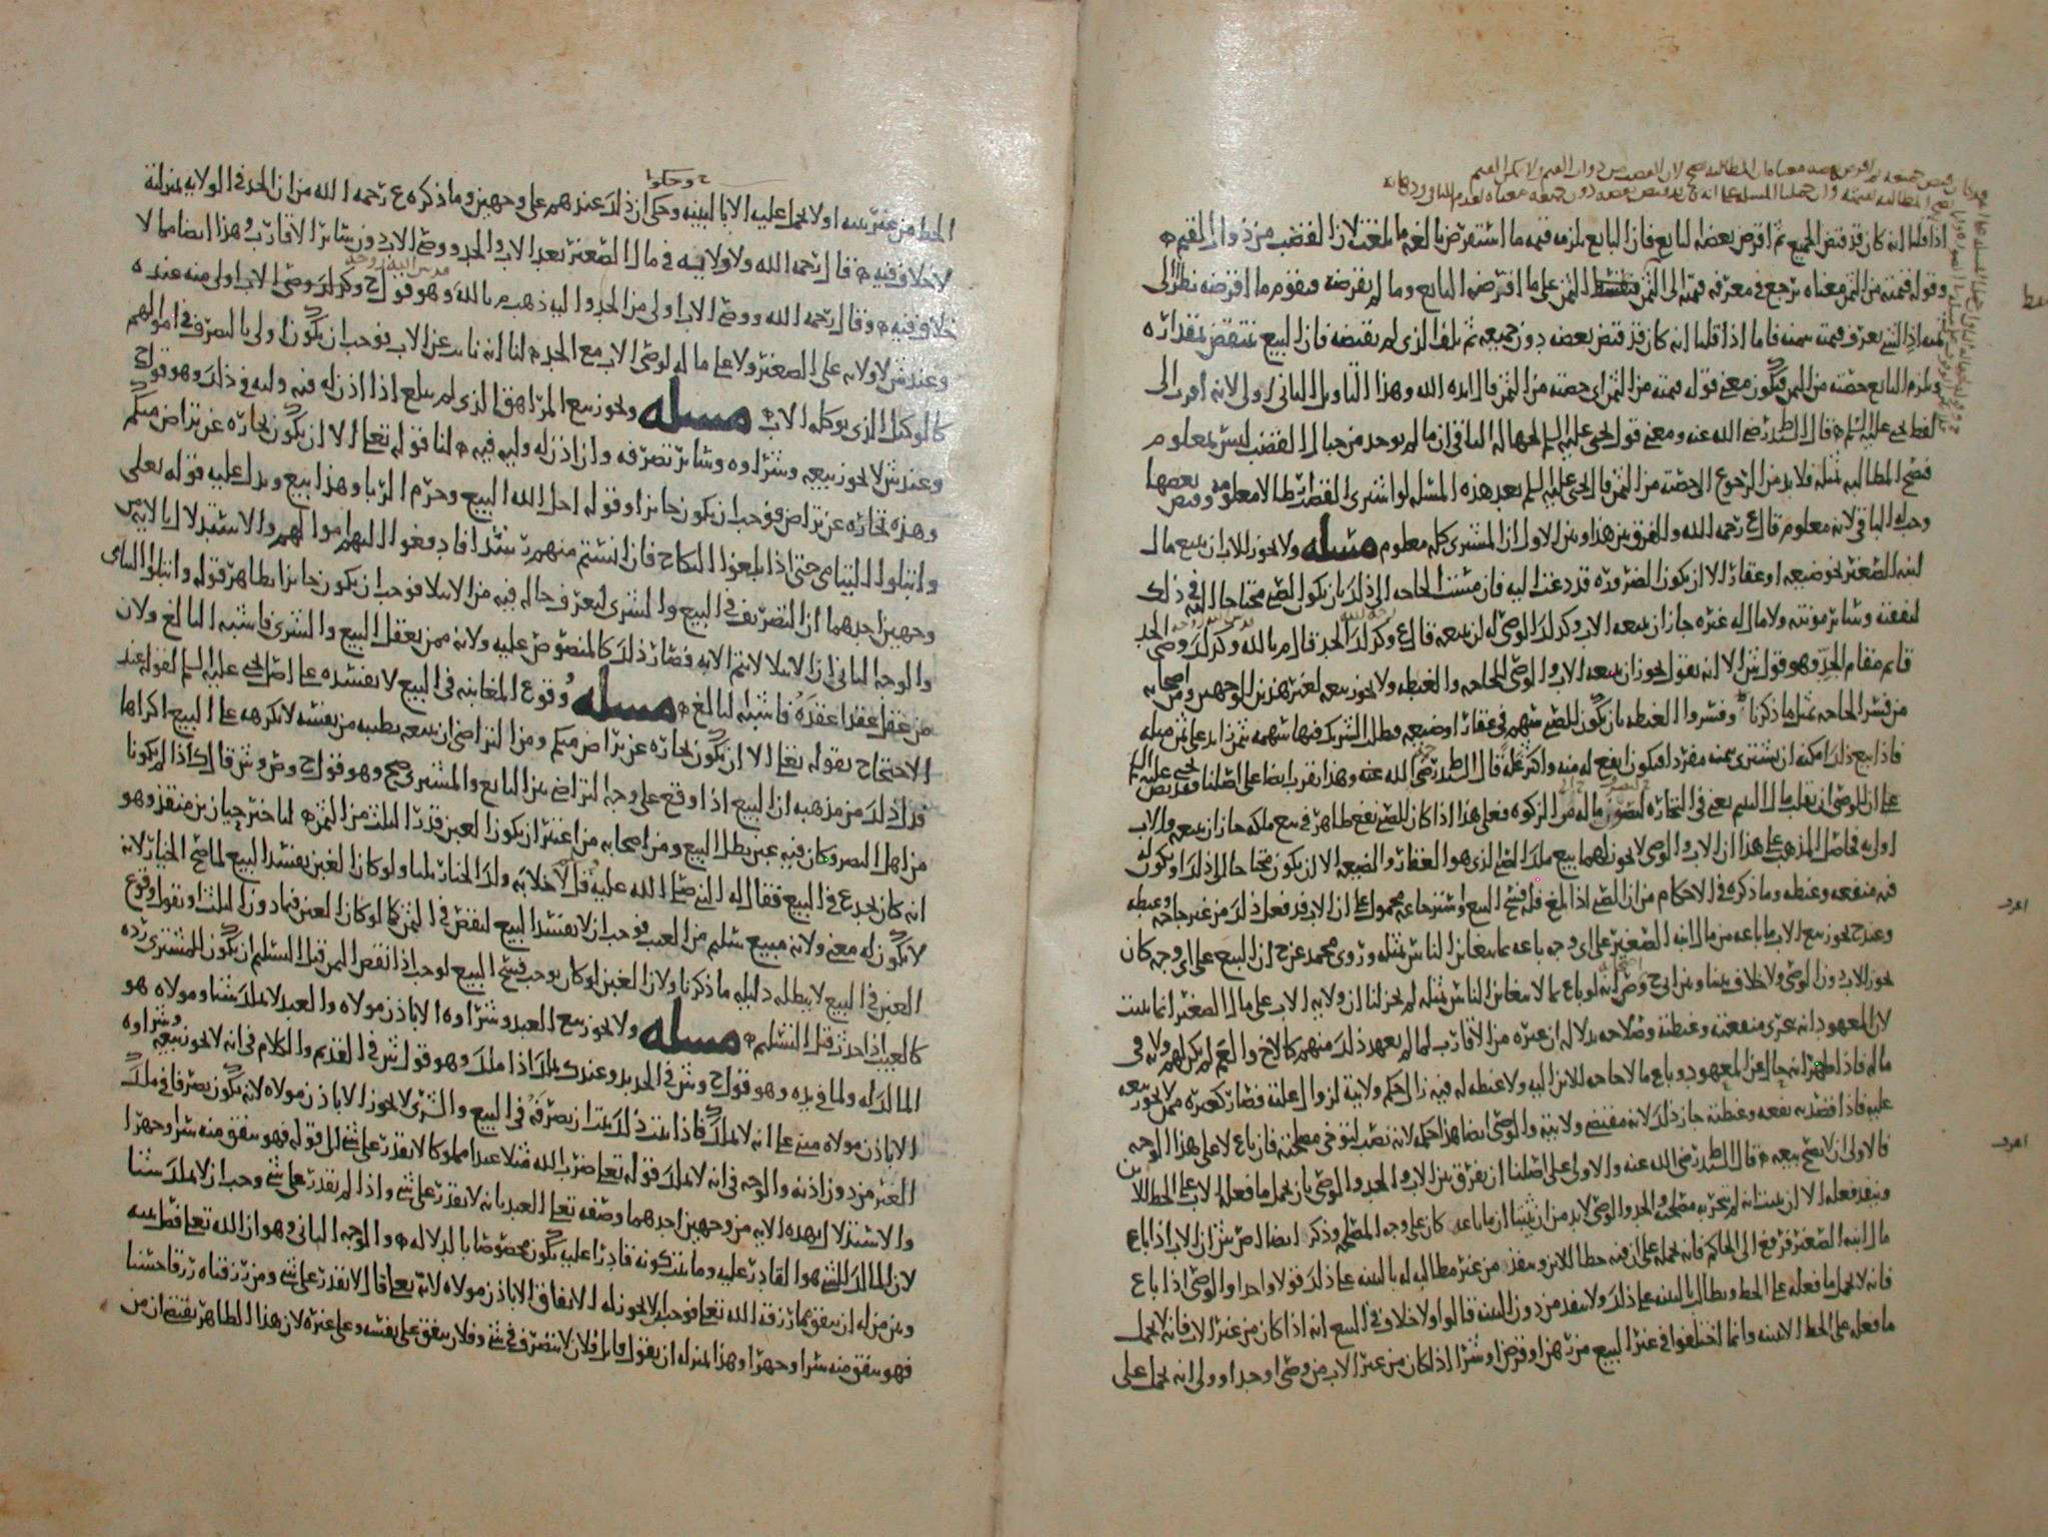 اذا قلنا انه كان قد قبض الجميع ثم اقرض بعضه البايع فان البايع يلزمه قيمه ما استقرض بالغه ما بلغت لان القضب من ذوات القيم
وقوله قيمته من الثمن معناه يرجع في معرفه قيمته الى الثمن فيقسط الثمن على ما اقترضه البايع وما لم يقرضه فيقوم ما اقرضه نظرا الى
ثمنه اذ الشي يعرف قيمته بثمنه فاما اذا قلنا انه كان قد قبض بعضه دون جميعه ثم تلف الذي لم يقبضه فان البيع ينتقض بمقداره
ويلزم البايع حصته من الثمن فيكون معنى قوله قيمته من الثمن اي حصته من الثمن قال ايده الله وهذا التاويل الثاني اولى لانه اقرب الى
لفظ يحيى عليه السلم قال السيد ط رضي الله عنه ومعنى قول يحيى عليه السلم لجهاله الباقي ان ما لم يوجد من جبال القضب ليس بمعلوم
فتصح المطالبه بمثله فلا بد من الرجوع الى حصته من الثمن قال يحيى عليه السلم بعد هذه المسئله لو اشترى القضب ارطالا معلومه وقبض بعضها
وجب له الباقي لانه معلوم قال ع رحمه الله والفرق بين هذا وبين الاول ان المشترى كله معلوم مسئله ولا يجوز للاب ان يبيع مال
ابنه الصغير نحو ضيعه او عقار الا ان يكون الضروره قد دعت اليه فان مست الحاجه الى ذلك بان يكون الصبي محتاجا اليه في ذلك
لنفقته وسائر مونته ولا مال له غيره جاز ان يبيعه الاب وكذلك الوصي له ان يبيعه قال ع وكذلك الجد قال م بالله وكذلك وصي الجد
قايم مقام الجد وهو قول ش الا انه يقول يجوز ان يبيعه الاب والوصي للحاجه والغبطه ولا يجوز بيعه لغير هذين الوجهين ومن اصحابه
من فسر الحاجه بمثل ما ذكرنا وفسروا الغبطه بان يكون للصبي سهم في عقار او ضيعه فطلب الشريك فيها سهمه بثمن زايد على ثمن مثله
فاذا بيع ذلك امكنه ان يشترى بثمنه مفردا فيكون انفع له منه واكثر غله قال السيد ط رضي الله عنه وهذا يقرب ايضا على اصلنا فقد نص يحيى عليه السلم
على ان للوصي ان يقلب مال اليتيم يعني في التجاره ليصون ماله من الزكوه فعلى هذا اذا كان للصبي نفع ظاهر في بيع ملكه جاز ان يبيعه والاب
اولى به فحاصل المذهب على هذا ان الاب والوصي لا يجوز لهما بيع ملك الصبي الذي هو العقار والضيعه الا ان يكون محتاجا الى ذلك او يكون له
فيه منفعه وغبطه وما ذكره في الاحكام من ان الصبي اذا بلغ فله فسخ البيع واسترجاعه محمول على ان الاب قد فعل ذلك من غير حاجه وغبطه
وعند ح يجوز بيع الاب ما باعه من مال ابنه الصغير على اي وجه باعه بما يتغابن الناس بمثله وروى محمد عن ح ان البيع على اي وجه كان
يجوز للاب دون الوصي ولا خلاف بيننا وبين ابي ح وص انه لو باع بما لا يتغابن الناس بمثله لم يجز لنا ان ولايه الاب على مال الصغير انما يثبت
لان المعهود انه يتحرى منفعته وغبطته وصلاحه بدلاله ان غيره من الاقارب لما لم يعهد ذلك منهم كالاخ والعم لم يكن لهم ولايه في
ماله فاذا ظهر انه حال عن المعهود وباع ما لا حاجه للابن اليه ولا غبطه له فيه زال حكم ولايته لزوال علته فصار كغيره ممن لا يجوز بيعه
عليه فاذا قصد به نفعه وغبطته جاز ذلك لانه مقتضى ولايته والوصي ايضا هذا حكمه لانه نصب ليتوخى مصلحته فان باع لا على هذا الوجه
فالاولى ان لا يصح بيعه قال السيد ط رضي الله عنه والاولى على اصلنا ان يفرق بين الاب والجد والوصي بان يحمل ما فعله الاب على الحظ للابن
وينفذ فعله الا ان يثبت انه لم يتحر به مصلحته والجد والوصي لا بد من ان يثبتا ان ما باعه كان على وجه المصلحه وذكر ايضا اص ش ان الاب اذا باع
مال ابنه الصغير فرفع الى الحاكم فانه يحمله على ان فيه حظا للابن وينفذ من غير مطالبه له بالبينه على ذلك قولا واحدا والوصي اذا باع
فانه لا يحمل ما فعله على الحظ ويطالب بالبينه على ذلك ولا ينفذ من دون البينه قالوا ولا خلاف في البيع انه اذا كان من غير الاب فانه لا يحمل
ما فعله على الحظ الا ببينه وانما اختلفوا في غير البيع من رهن او قرض او شرا اذا كان من غير الاب من وصي او جد او ولي انه يحمل على
الحظ من غير بينه او لا يحمل عليه الا بالبينه وحكى ان ذلك عندهم على وجهين وما ذكره ع رحمه الله من ان الجد في الولايه بمنزلته
لا خلاف فيه قال رحمه الله ولا ولايه في مال الصغير بعد الاب والجد ووصي الاب دون سائر الاقارب وهذا ايضا مما لا
خلاف فيه وقال رحمه الله ووصي الاب اولى من الجد واليه ذهب م بالله وهو قول ح وكذلك وصي الاب اولى منه عنده
وعند ش لا ولايه على الصغير ولا على ماله لوصي الاب مع الجد لنا انه ناب عن الاب فوجب ان يكون اولى بالتصرف في اموالهم
كالوكيل الذي يوكله الاب مسئله ويجوز بيع المراهق الذي لم يبلغ اذا اذن له فيه وليه في ذلك وهو قول ح
وعند ش لا يجوز بيعه وشراوه وسائر تصرفه وان اذن له وليه فيه لنا قوله تعالى الا ان يكون تجاره عن تراض منكم
وهذه تجاره عن تراض فوجب ان يكون جائزا وقوله احل الله البيع وحرم الربا وهذا بيع ويدل عليه قوله تعلى
وابتلوا اليتامى حتى اذا بلغوا النكاح فان انستم منهم رشدا فادفعوا اليهم اموالهم والاستدلال بالايه من
وجهين احدهما ان التصرف في البيع والشرى ليعرف حاله فيه من الابتلا فوجب ان يكون جائزا بظاهر قوله وابتلوا اليتامى
والوجه الثاني ان الابتلا لا يتم الا به فصار ذلك كالمنصوص عليه ولانه ممن يعقل البيع والشرى فاشبه البالغ ولان
من عقل عقدا عقده فاشبه البالغ مسئله وقوع المغابنه في البيع لا يفسده على اصل يحيى عليه السلم لقوله عند
الاحتجاج بقوله تعالى الا ان يكون تجاره عن تراض منكم ومن التراضي ان يبيعه بطيبه من نفسه لا يكرهه على البيع اكراها
فدل ذلك من مذهبه ان البيع اذا وقع على وجه التراضي بين البايع والمشترى صح وهو قول ح وص وش وقال ك اذا لم يكونا
من اهل البصر وكان فيه غبن بطل البيع ومن اصحابه من اعتبر ان يكون الغبن قدر الثلث من الثمن لنا خبر حبان بن منقذ وهو
انه كان يخدع في البيع فقال له النبي صلى الله عليه قل لا خلابه ولك الخيار ثلثا ولو كان الغبن يفسد البيع لما صح الخيار لانه
لا يكون له معنى ولانه مبيع سليم من العيب فوجب ان لا يفسد البيع لنقص في الثمن كما لو كان الغبن فيما دون الثلث او نقول وقوع
الغبن في البيع لا يبطله دليله ما ذكرنا ولان الغبن لو كان يوجب فسخ البيع لوجب اذا نقص الثمن قبل التسليم ان يكون للمشترى رده
كالعيب اذا حدث قبل التسليم مسئله ولا يجوز بيع العبد وشراوه الا باذن مولاه والعبد لا يملك شيئا ومولاه هو
المالك له ولما في يده وهو قول ح وش في الجديد وعند ك يملك اذا ملك وهو قول ش في القديم والكلام في انه لا يجوز بيعه وشراوه
الا باذن مولاه مبني على انه لا يملك فاذا ثبت ذلك ثبت ان تصرفه في البيع والشرى لا يجوز الا باذن مولاه لانه يكون تصرفا في ملك
الغير من دون اذنه والوجه في انه لا يملك قوله تعالى ضرب الله مثلا عبدا مملوكا لا يقدر على شي الى قوله فهو ينفق منه سرا وجهرا
والاستدلال بهذه الايه من وجهين احدهما وصفه تعالى العبد بانه لا يقدر على شي واذا لم يقدر على شي وجب ان لا يملك شيئا
لان المالك للشي هو القادر عليه وما ثبت كونه قادرا عليه يكون مخصوصا بالدلاله والوجه الثاني وهو ان الله تعالى فصل بينه
وبين من له ان ينفق مما رزقه الله تعالى فوجب ان لا يجوز له الانفاق الا باذن مولاه لانه تعالى قال لا يقدر على شي ومن رزقناه رزقا حسنا
فهو ينفق منه سرا وجهرا وهذا بمنزله ان يقول قايل فلان لا يتصرف في شي وفلان ينفق على نفسه وعلى غيره لان هذا الظاهر يقتضي ان من